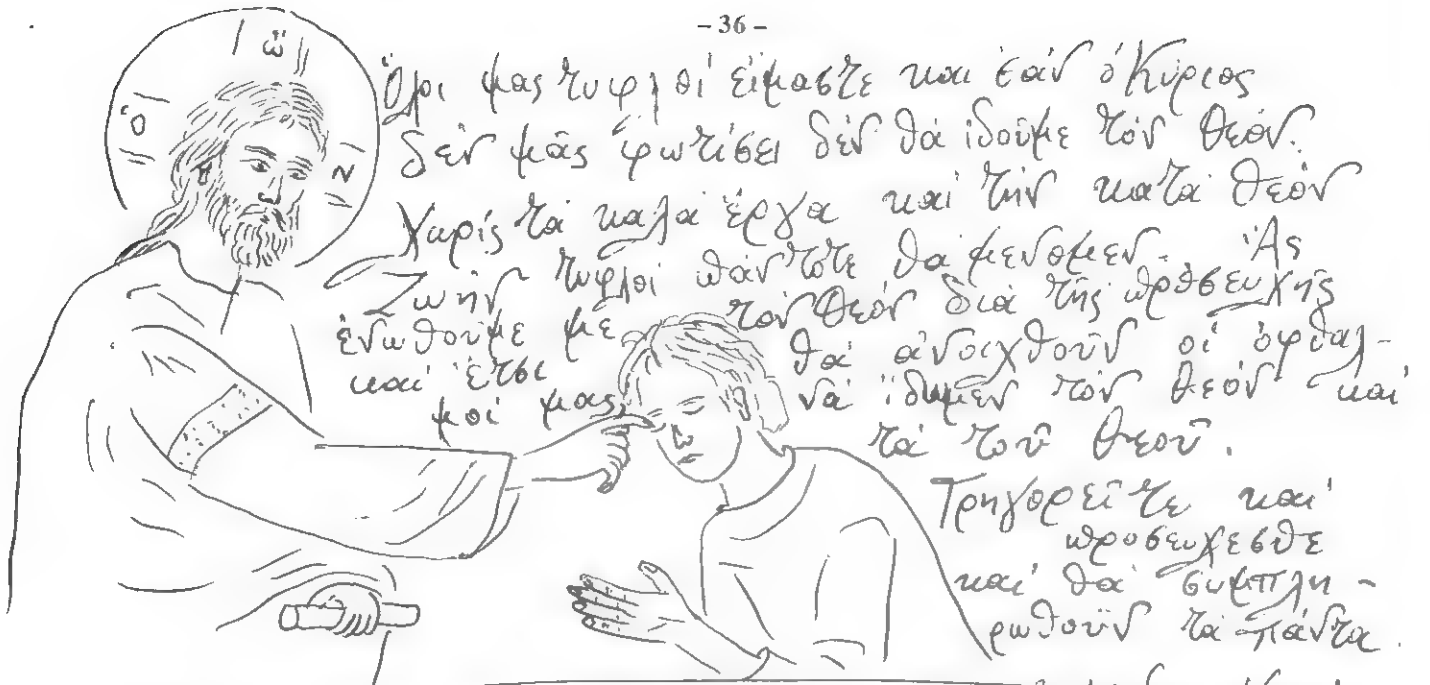 - 36 -
ὁ ὤ Ν
Ὅλοι μας τυφλοί εἴμαστε και ἐάν ὁ Κύριος
δέν μᾶς φωτίσει δέν θά ἰδοῦμε τόν Θεόν.
Χωρίς τά καλά ἔργα καί τήν κατά Θεόν
Ζωήν τυφλοί πάντοτε θά μένομεν. Ἄς
ἑνωθοῦμε μέ τόν Θεόν διά τῆς προσευχῆς
καί ἔτσι θά ἀνοιχθοῦν οἱ ὀφθαλ-
μοί μας νά ἴδωμεν τόν θεόν καί
τά τοῦ θεοῦ.
Γρηγορεῖτε καί
προσευχεσθε
καί θά συμπλη-
ρωθοῦν τά πάντα.